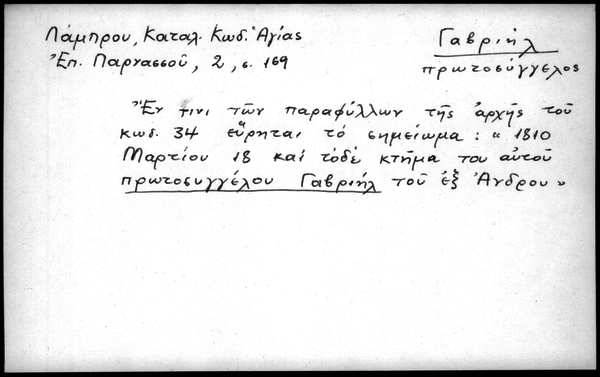 Λάμπρου, Καταλ. Κωδ. Ἁγίας
Ἐπ. Παρνασσοῦ, 2, σ. 169
Γαβριήλ
πρωτοσύγγελος
Ἔν τινι τῶν παραφύλλων τῆς ἀρχῆς τοῦ
κωδ. 34 εὕρηται τὸ σημείωμα: « 1810
Μαρτίου 18 καὶ τόδε κτῆμα του αὐτοῦ
πρωτοσυγγέλου Γαβριήλ τοῦ ἐξ Ἄνδρου »